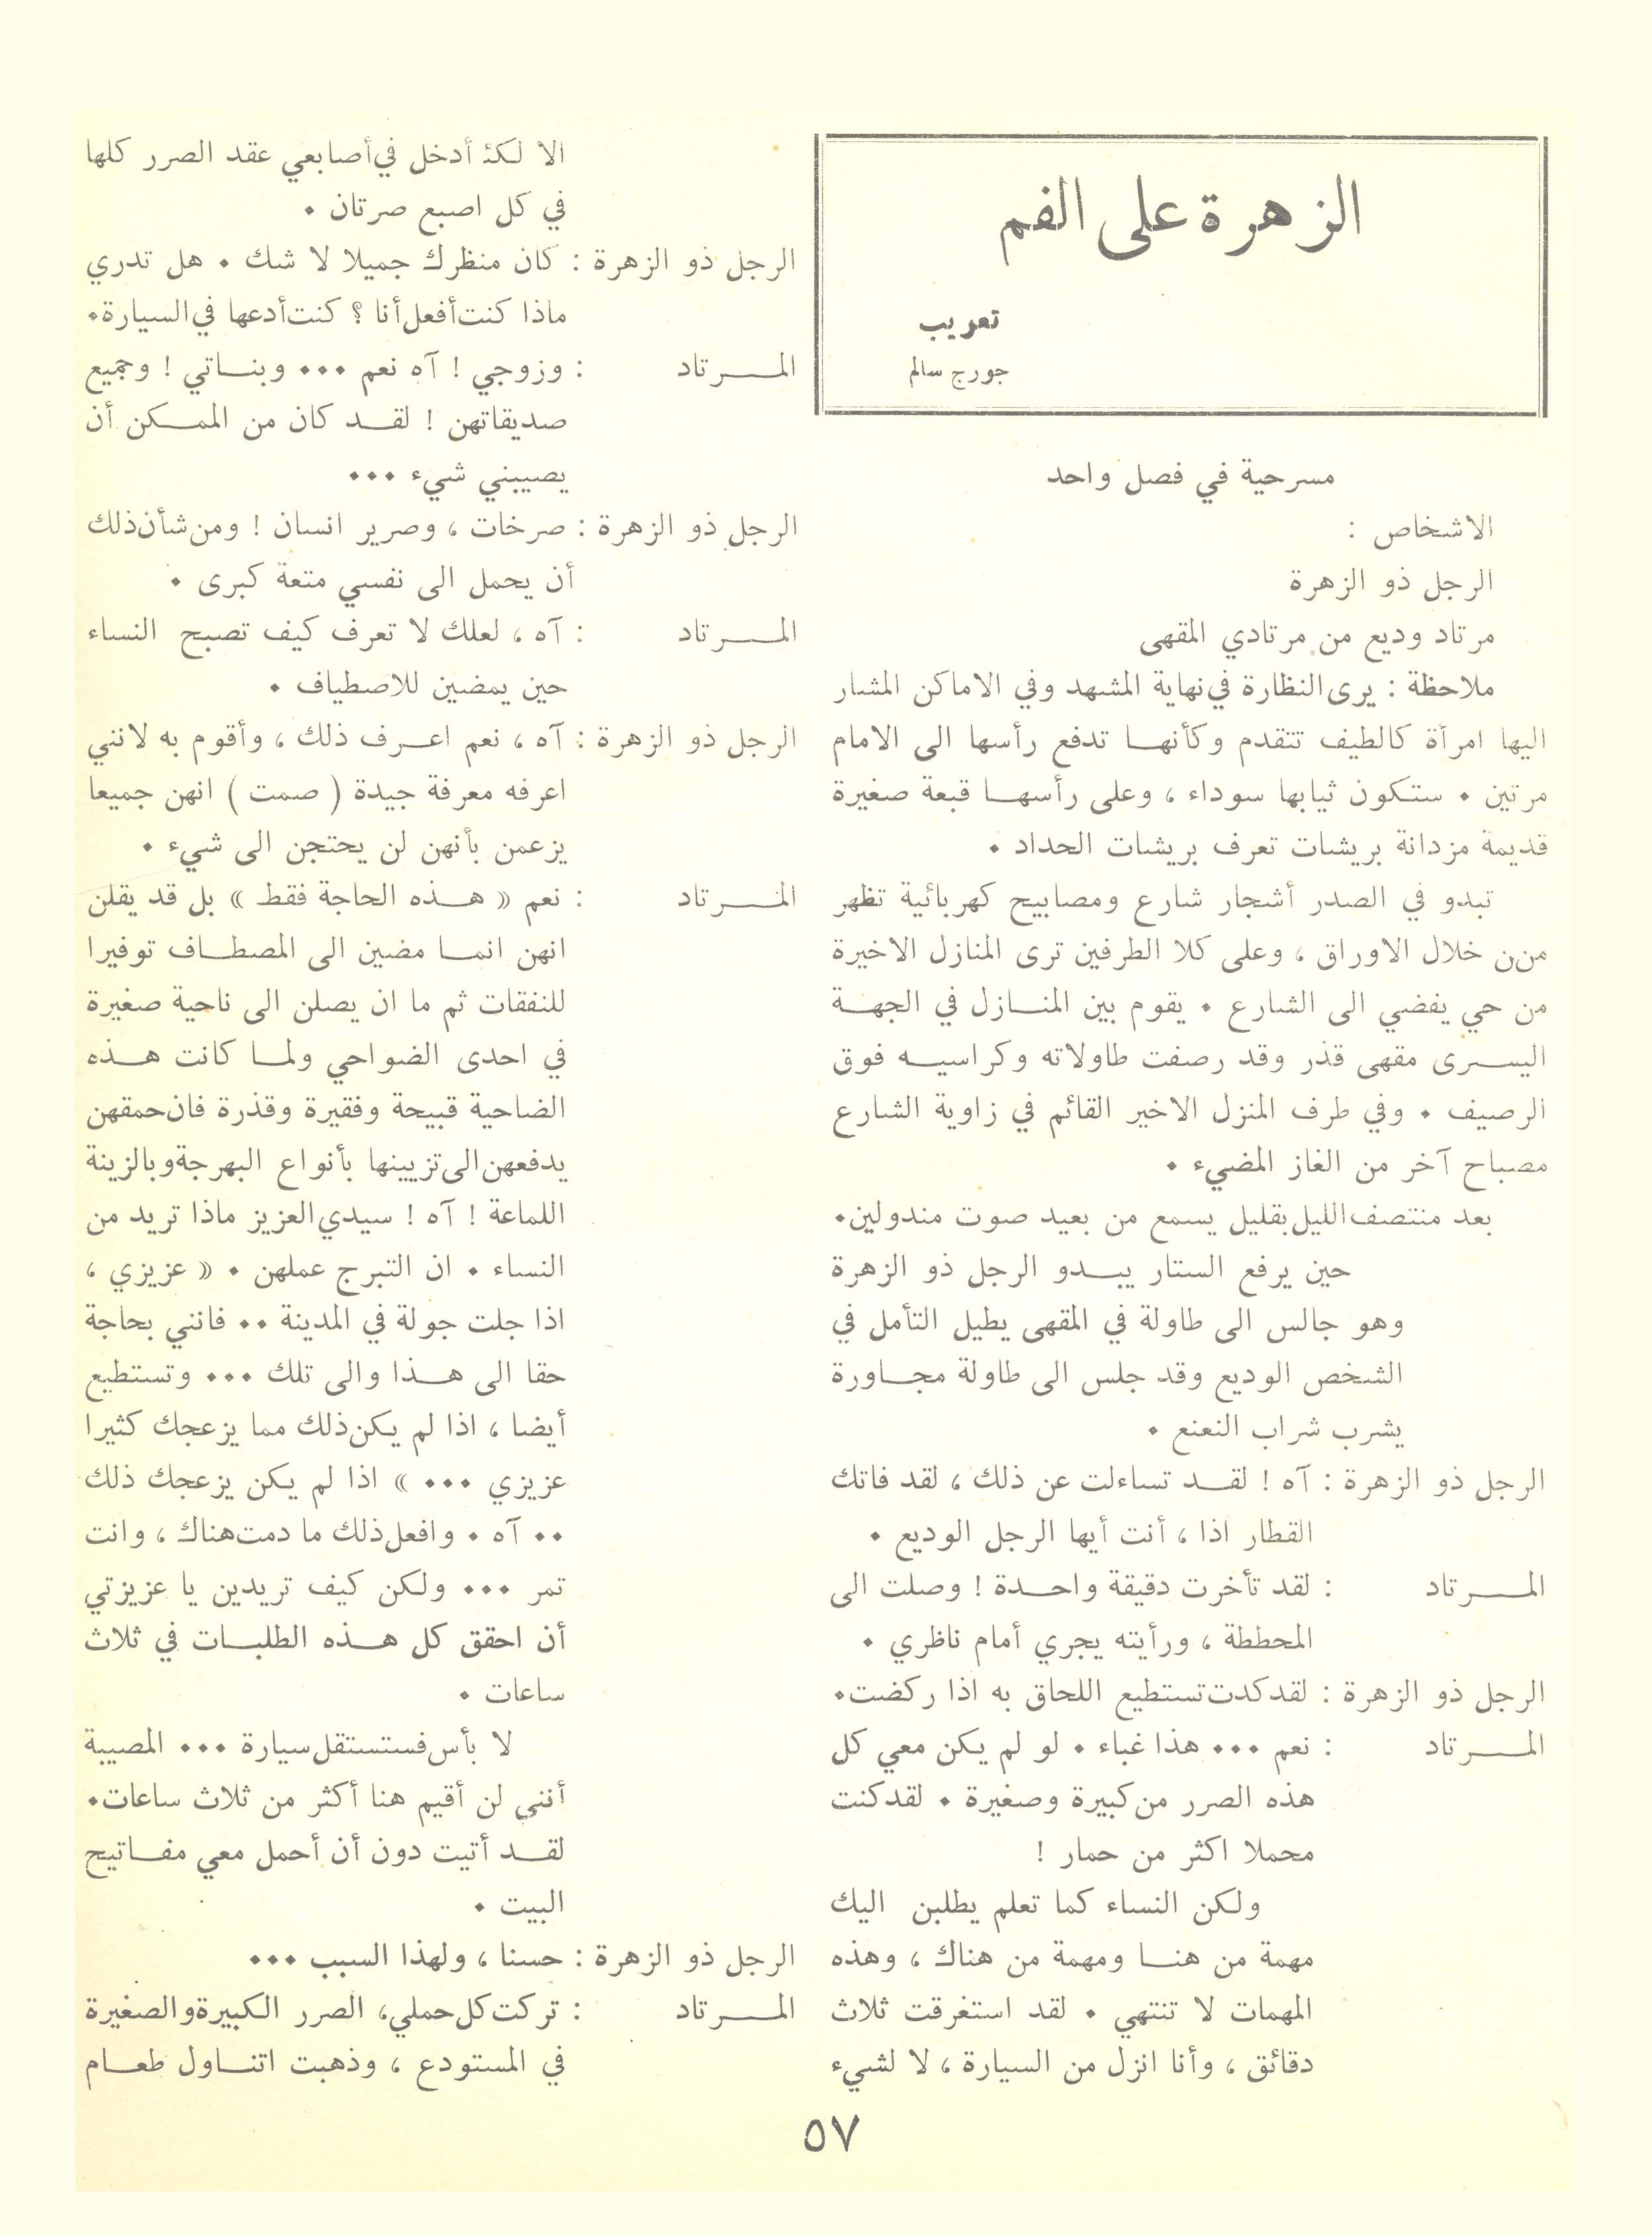 الزهرة على الفم
تعريب
جورج سالم
مسرحية في فصل واحد
الاشخاص :
الرجل ذو الزهرة
مرتاد وديع من مرتادي المقهى
ملاحظة : يرى النظارة في نهاية المشهد وفي الاماكن المشار
اليها امرأة كالطيف تتقدم وكأنهـا تدفع رأسها الى الامام
مرتين . ستكون ثيابها سوداء ، وعلى رأسهـا قبعة صغيرة
قديمة مزدانة بريشات تعرف بريشات الحداد .
تبدو في الصدر أشجار شارع ومصابيح كهربائية تظهر
من خلال الاوراق ، وعلى كلا الطرفين ترى المنازل الاخيرة
من حي يفضي الى الشارع . يقوم بين المنـازل في الجهـة
اليسـرى مقهى قذر وقد رصفت طاولاته وكراسيـه فوق
الرصيف . وفي طرف المنزل الاخير القائم في زاوية الشارع
مصباح آخر من الغاز المضيء .
بعد منتصف الليل بقليل يسمع من بعيد صوت مندولين.
حين يرفع الستار يبـدو الرجل ذو الزهرة
وهو جالس الى طاولة في المقهى يطيل التأمل في
الشخص الوديع وقد جلس الى طاولة مجـاورة
يشرب شراب النعنع .
الرجل ذو الزهرة : آه ! لقـد تساءلت عن ذلك ، لقد فاتك
القطار اذا ، أنت أيها الرجل الوديع .
المـرتاد : لقد تأخرت دقيقة واحـدة ! وصلت الى
المحططة ، ورأيته يجري أمام ناظري .
الرجل ذو الزهرة : لقد كدت تستطيع اللحاق به اذا ركضت.
المـرتاد : نعم ... هذا غباء . لو لم يكن معي كل
هذه الصرر من كبيرة وصغيرة . لقد كنت
محملا اكثر من حمار !
ولكن النساء كما تعلم يطلبن اليك
مهمة من هنـا ومهمة من هناك ، وهذه
المهمات لا تنتهي . لقد استغرقت ثلاث
دقائق ، وأنا انزل من السيارة ، لا لشيء
الا لكئ أدخل في أصابعي عقد الصرر كلها
في كل اصبع صرتان .
الرجل ذو الزهرة : كان منظرك جميلا لا شك . هل تدري
ماذا كنت أفعل أنا ؟ كنت أدعها في السيارة.
المـرتاد : وزوجي ! آه نعم ... وبنـاتي ! وجميع
صديقاتهن ! لقـد كان من الممـكن أن
يصيبني شيء ...
الرجل ذو الزهرة : صرخات ، وصرير انسان ! ومن شأن ذلك
أن يحمل الى نفسي متعة كبرى .
المـرتاد : آه ، لعلك لا تعرف كيف تصبح النساء
حين يمضين للاصطياف .
الرجل ذو الزهرة : آه ، نعم اعـرف ذلك ، وأقوم به لانني
اعرفه معرفة جيدة ( صمت ) انهن جميعا
يزعمن بأنهن لن يحتجن الى شيء .
المـرتاد : نعم « هـذه الحاجة فقط » بل قد يقلن
انهن انمـا مضين الى المصطـاف توفيرا
للنفقات ثم ما ان يصلن الى ناحية صغيرة
في احدى الضواحي ولمـا كانت هـذه
الضاحية قبيحة وفقيرة وقذرة فان حمقهن
يدفعهن الى تزيينها بأنواع البهرجة وبالزينة
اللماعة ! آه ! سيدي العزيز ماذا تريد من
النساء . ان التبرج عملهن . « عزيزي ،
اذا جلت جولة في المدينة .. فانني بحاجة
حقا الى هـذا والى تلك ... وتستطيع
أيضا ، اذا لم يكن ذلك مما يزعجك كثيرا
عزيزي ... » اذا لم يكن يزعجك ذلك
.. آه . وافعل ذلك ما دمت هناك ، وانت
تمر ... ولكن كيف تريدين يا عزيزتي
أن احقق كل هـذه الطلبـات في ثلاث
ساعات .
لا بأس فستستقل سيارة ... المصيبة
أنني لن أقيم هنا أكثر من ثلاث ساعات.
لقـد أتيت دون أن أحمل معي مفـاتيح
البيت .
الرجل ذو الزهرة : حسنا ، ولهذا السبب ...
المـرتاد : تركت كل حملي، الصرر الكبيرة والصغيرة
في المستودع ، وذهبت اتنـاول طعـام
٥٧